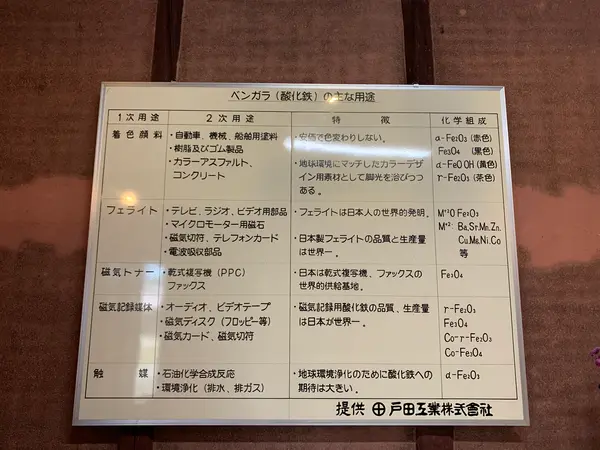 ベンガラ（酸化鉄）の主な用途
1次用途 2次用途 特徴 化学組成
着色顔料
・自動車、機械、船舶用塗料
・樹脂及びゴム製品
・カラーアスファルト、
コンクリート
・安価で色変わりしない。
・地球環境にマッチしたカラーデザ
イン用素材として脚光を浴びつつ
ある。
α-Fe₂O₃（赤色）
Fe₃O₄（黒色）
α-FeOOH（黄色）
r-Fe₂O₃（茶色）
フェライト
・テレビ、ラジオ、ビデオ用部品
・マイクロモーター用磁石
・磁気切符、テレフォンカード
・電波吸収部品
・フェライトは日本人の世界的発明。
・日本製フェライトの品質と生産量
は世界一。
M⁺²O Fe₂O₃
M⁺²: Ba,Sr,Mn,Zn,
Cu,Mg,Ni,Co
等
磁気トナー
・乾式複写機（PPC）
ファックス
・日本は乾式複写機、ファックスの
世界的供給基地。
Fe₃O₄
磁気記録媒体
・オーディオ、ビデオテープ
・磁気ディスク（フロッピー等）
・磁気カード、磁気切符
・磁気記録用酸化鉄の品質、生産量
は日本が世界一。
r-Fe₂O₃
Fe₃O₄
Co-r-Fe₂O₃
Co-Fe₃O₄
触媒
・石油化学合成反応
・環境浄化（排水、排ガス）
・地球環境浄化のために酸化鉄への
期待は大きい。
α-Fe₂O₃
提供 戸田工業株式會社